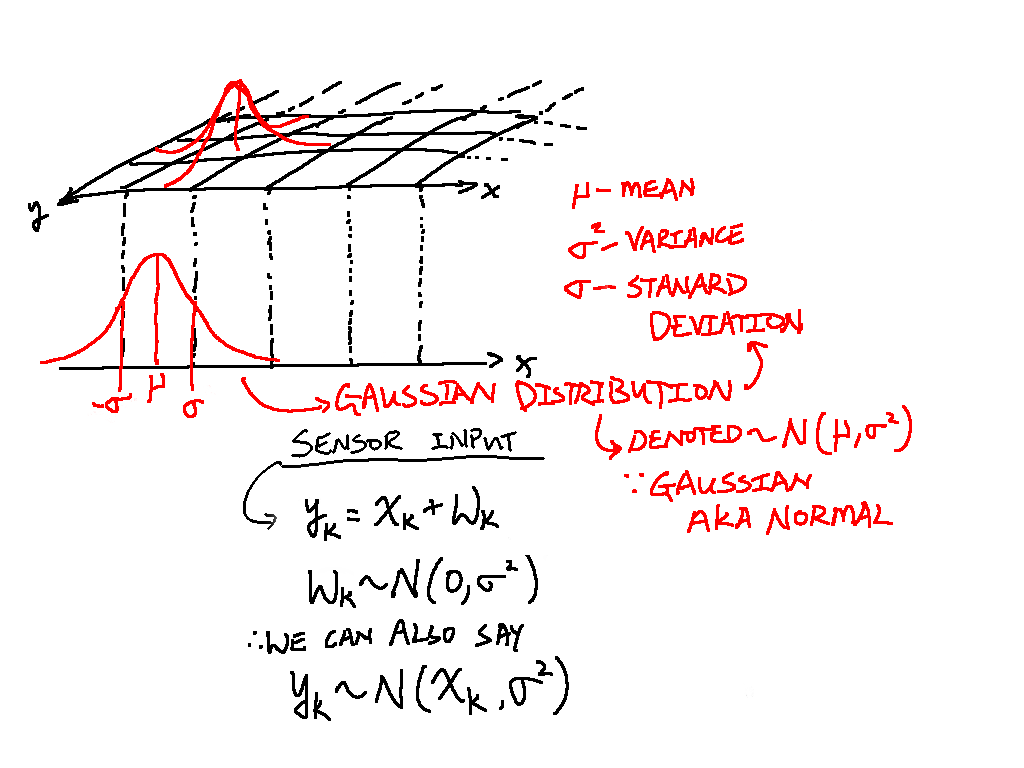 x
y
μ - MEAN
σ² - VARIANCE
σ - STANARD
DEVIATION
x
-σ μ σ
GAUSSIAN DISTRIBUTION
DENOTED ~ N(μ, σ²)
∵ GAUSSIAN
AKA NORMAL
SENSOR INPUT
yₖ = xₖ + Wₖ
Wₖ ~ N(0, σ²)
∴ WE CAN ALSO SAY
yₖ ~ N(xₖ, σ²)